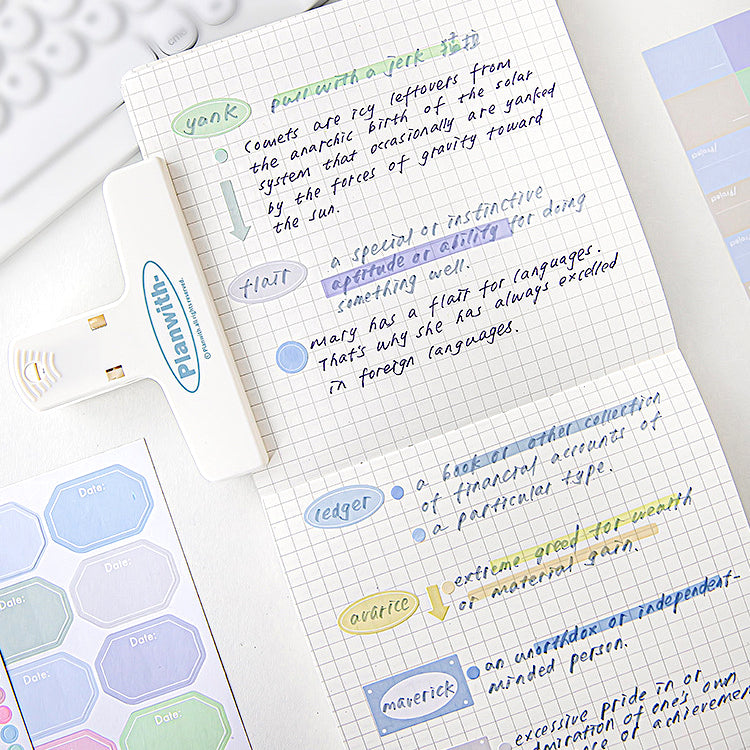 cmd
yank
pull with a jerk 猛拉
Comets are icy leftovers from
the anarchic birth of the solar
system that occasionally are yanked
by the forces of gravity toward
the sun.
flair
a special or instinctive
aptitude or ability for doing
something well.
Mary has a flair for languages.
That's why she has always excelled
in foreign languages.
Planwith-
ledger
a book or other collection
of financial accounts of
a particular type.
avarice
extreme greed for wealth
or material gain.
maverick
an unorthdox or independent-
minded person.
excessive pride in or
admiration of one's own
or achievemen
Date:
Date:
Date:
Date:
Date:
Date:
Project
Project